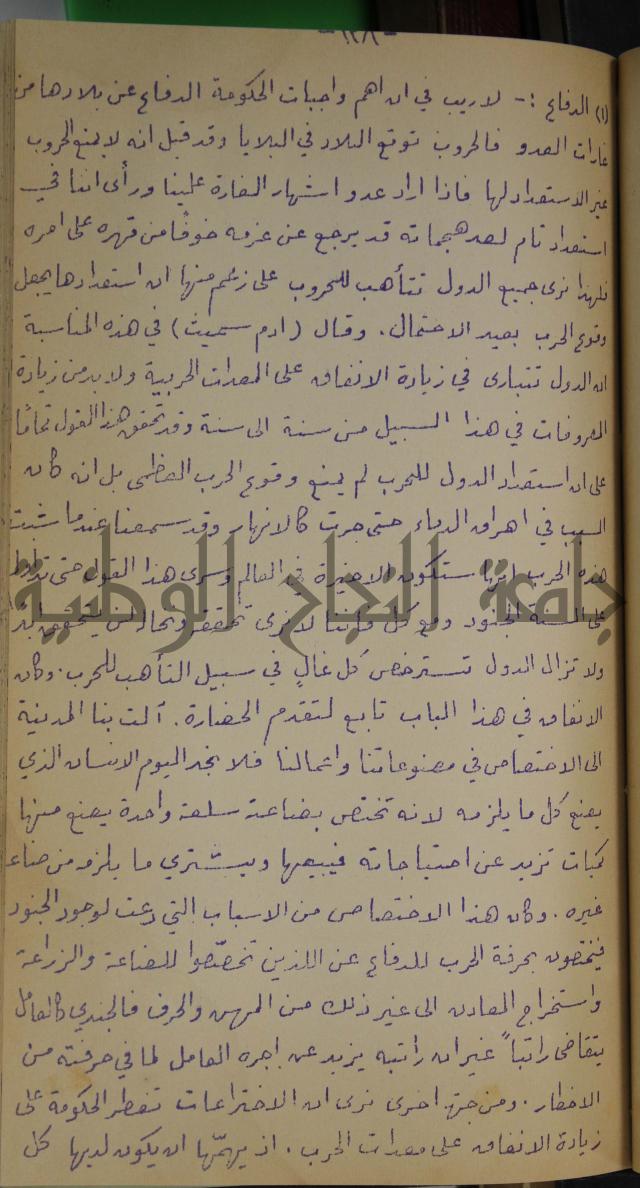 -١٢٨-
(١) الدفاع :- لا ريب في ان اهم واجبات الحكومة الدفاع عن بلادها من
غارات العدو فالحروب توقع البلاد في البلايا وقد قيل انه لا يمنع الحروب
غير الاستعداد لها فاذا اراد عدو اشهار الغارة علينا ورأى اننا في
استعداد تام لصد هجماته قد يرجع عن عزمه خوفًا من قهره على امره
فلهذا نرى جميع الدول تتأهب للحروب على زعم منها ان استعدادها يجعل
وقوع الحرب بعيد الاحتمال . وقال (ادم سميث) في هذه المناسبة
ان الدول تتبارى في زيادة الانفاق على المعدات الحربية ولا بد من زيادة
المصروفات في هذا السبيل من سنة الى سنة وقد تحقق هذا القول تمامًا
على ان استعداد الدول للحرب لم يمنع وقوع الحرب العظمى بل انه كان
السبب في اهراق الدماء حتى جرت كالانهار وقد سمعنا عندما شبت
هذه الحرب انها ستكون الاخيرة في العالم وسرى هذا القول حتى
على السنة الجنود ومع كل فاننا لا نرى تحققه
ولا تزال الدول تسترخص كل غالٍ في سبيل التأهب للحرب . وكان
الانفاق في هذا الباب تابع لتقدم الحضارة . آلت بنا المدنية
الى الاختصاص في مصنوعاتنا واعمالنا فلا نجد اليوم الانسان الذي
يصنع كل ما يلزمه لانه تختص بضاعة سلعة واحدة يصنع منها
كميات تزيد عن احتياجاته فيبيعها ويشتري ما يلزمه من صناعة
غيره . وكان هذا الاختصاص من الاسباب التي دعت لوجود الجنود
فيختصون بحرفة الحرب للدفاع عن اللذين تخصّصوا للصناعة والزراعة
واستخراج المعادن الى غير ذلك من المهن والحرف فالجندي كالعامل
يتقاضى راتباً غير ان راتبه يزيد عن اجرة العامل لما في حرفته من
الاخطار . ومن جهة اخرى نرى ان الاختراعات تضطر الحكومة على
زيادة الانفاق على معدات الحرب . اذ يهمّها ان يكون لديها كل
جامعة النجاح الوطنية